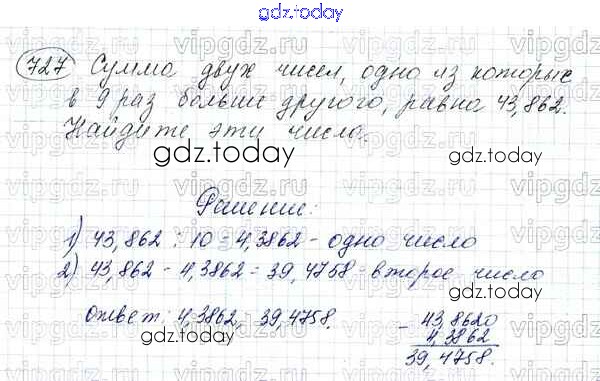 gdz.today
727 Сумма двух чисел, одно из которых
в 9 раз больше другого, равна 43,862.
Найдите эти числа.
gdz.today
gdz.today
Решение:
1) 43,862 : 10 = 4,3862 - одно число
2) 43,862 - 4,3862 = 39,4758 - второе число
Ответ: 4,3862, 39,4758.
- 43,8620
4,3862
39,4758.
gdz.today
gdz.today